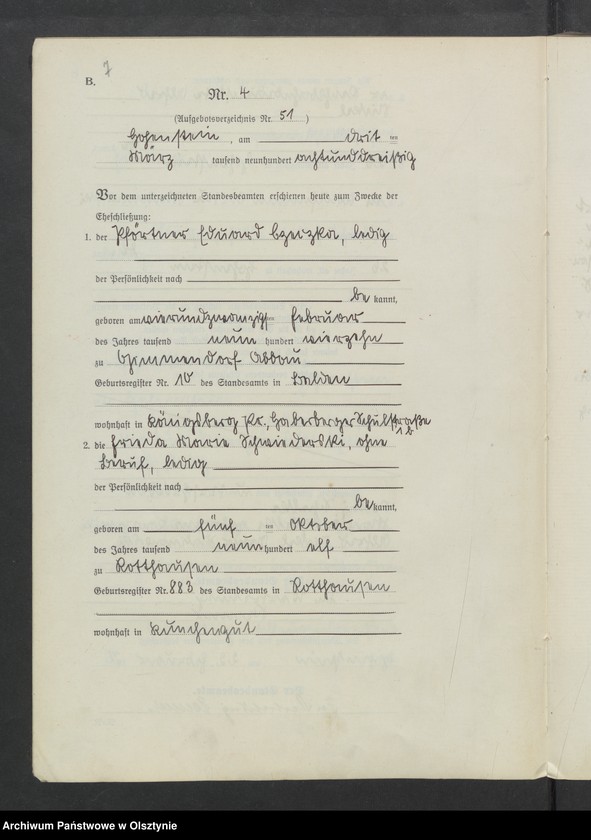 7
B.
Nr. 4
(Aufgebotsverzeichnis Nr. 51)
Hohenstein, am drit ten
März tausend neunhundert achtunddreißig
Vor dem unterzeichneten Standesbeamten erschienen heute zum Zwecke der
Eheschließung:
1. der Pförtner Eduard Czeczka, ledig
der Persönlichkeit nach
be kannt,
geboren am vierundzwanzigsten Februar
des Jahres tausend neun hundert vierzehn
zu Gimmendorf Abbau
Geburtsregister Nr. 10 des Standesamts in
wohnhaft in Königsberg Pr., Haberberger Schulstraße
1b
2. die Frieda Marie Schwiederski, ohne
Beruf, ledig
der Persönlichkeit nach
be kannt,
geboren am fünf ten Oktober
des Jahres tausend neun hundert elf
zu Rotthausen
Geburtsregister Nr. 883 des Standesamts in Rotthausen
wohnhaft in Kunchengut
Archiwum Państwowe w Olsztynie